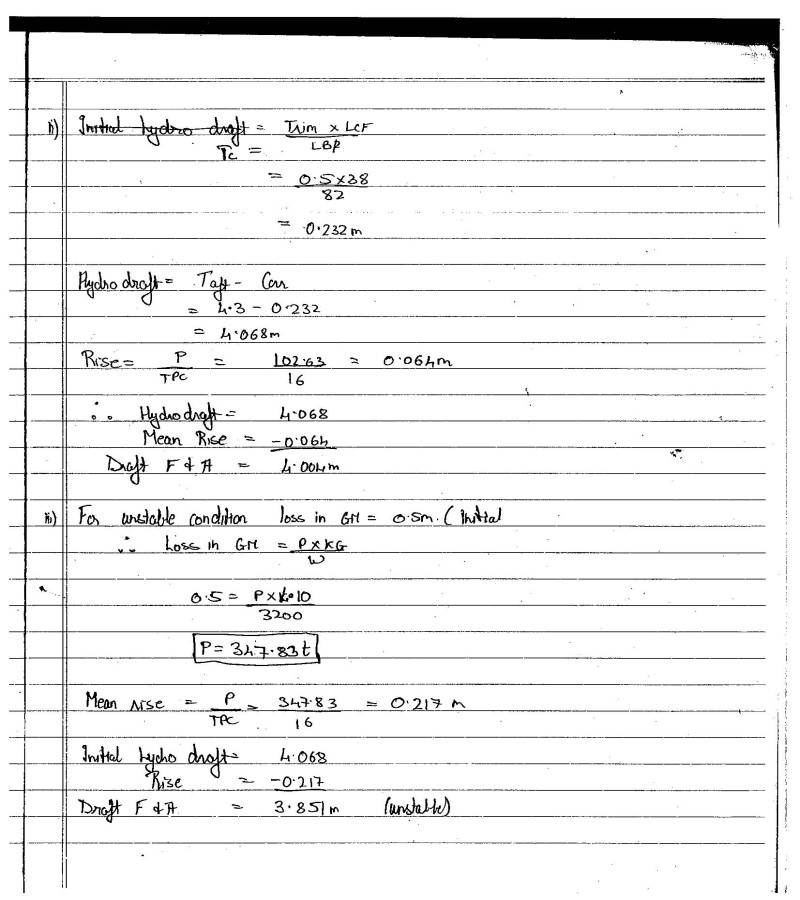 ii) Initial hydro draft = Trim × LCF / LBP
Tc =
= 0.5×38 / 82
= 0.232 m
Hydro draft = Taft - Corr
= 4.3 - 0.232
= 4.068m
Rise = P / TPC = 102.63 / 16 = 0.064m
∴ Hydro draft = 4.068
Mean Rise = -0.064
Draft F & A = 4.004m
iii) For unstable condition loss in GM = 0.5m. (Initial
∴ Loss in GM = P×KG / W
0.5 = P× / 3200
P = 347.83t
Mean rise = P / TPC = 347.83 / 16 = 0.217 m
Initial hydro draft = 4.068
Rise = -0.217
Draft F & A = 3.851m (unstable)